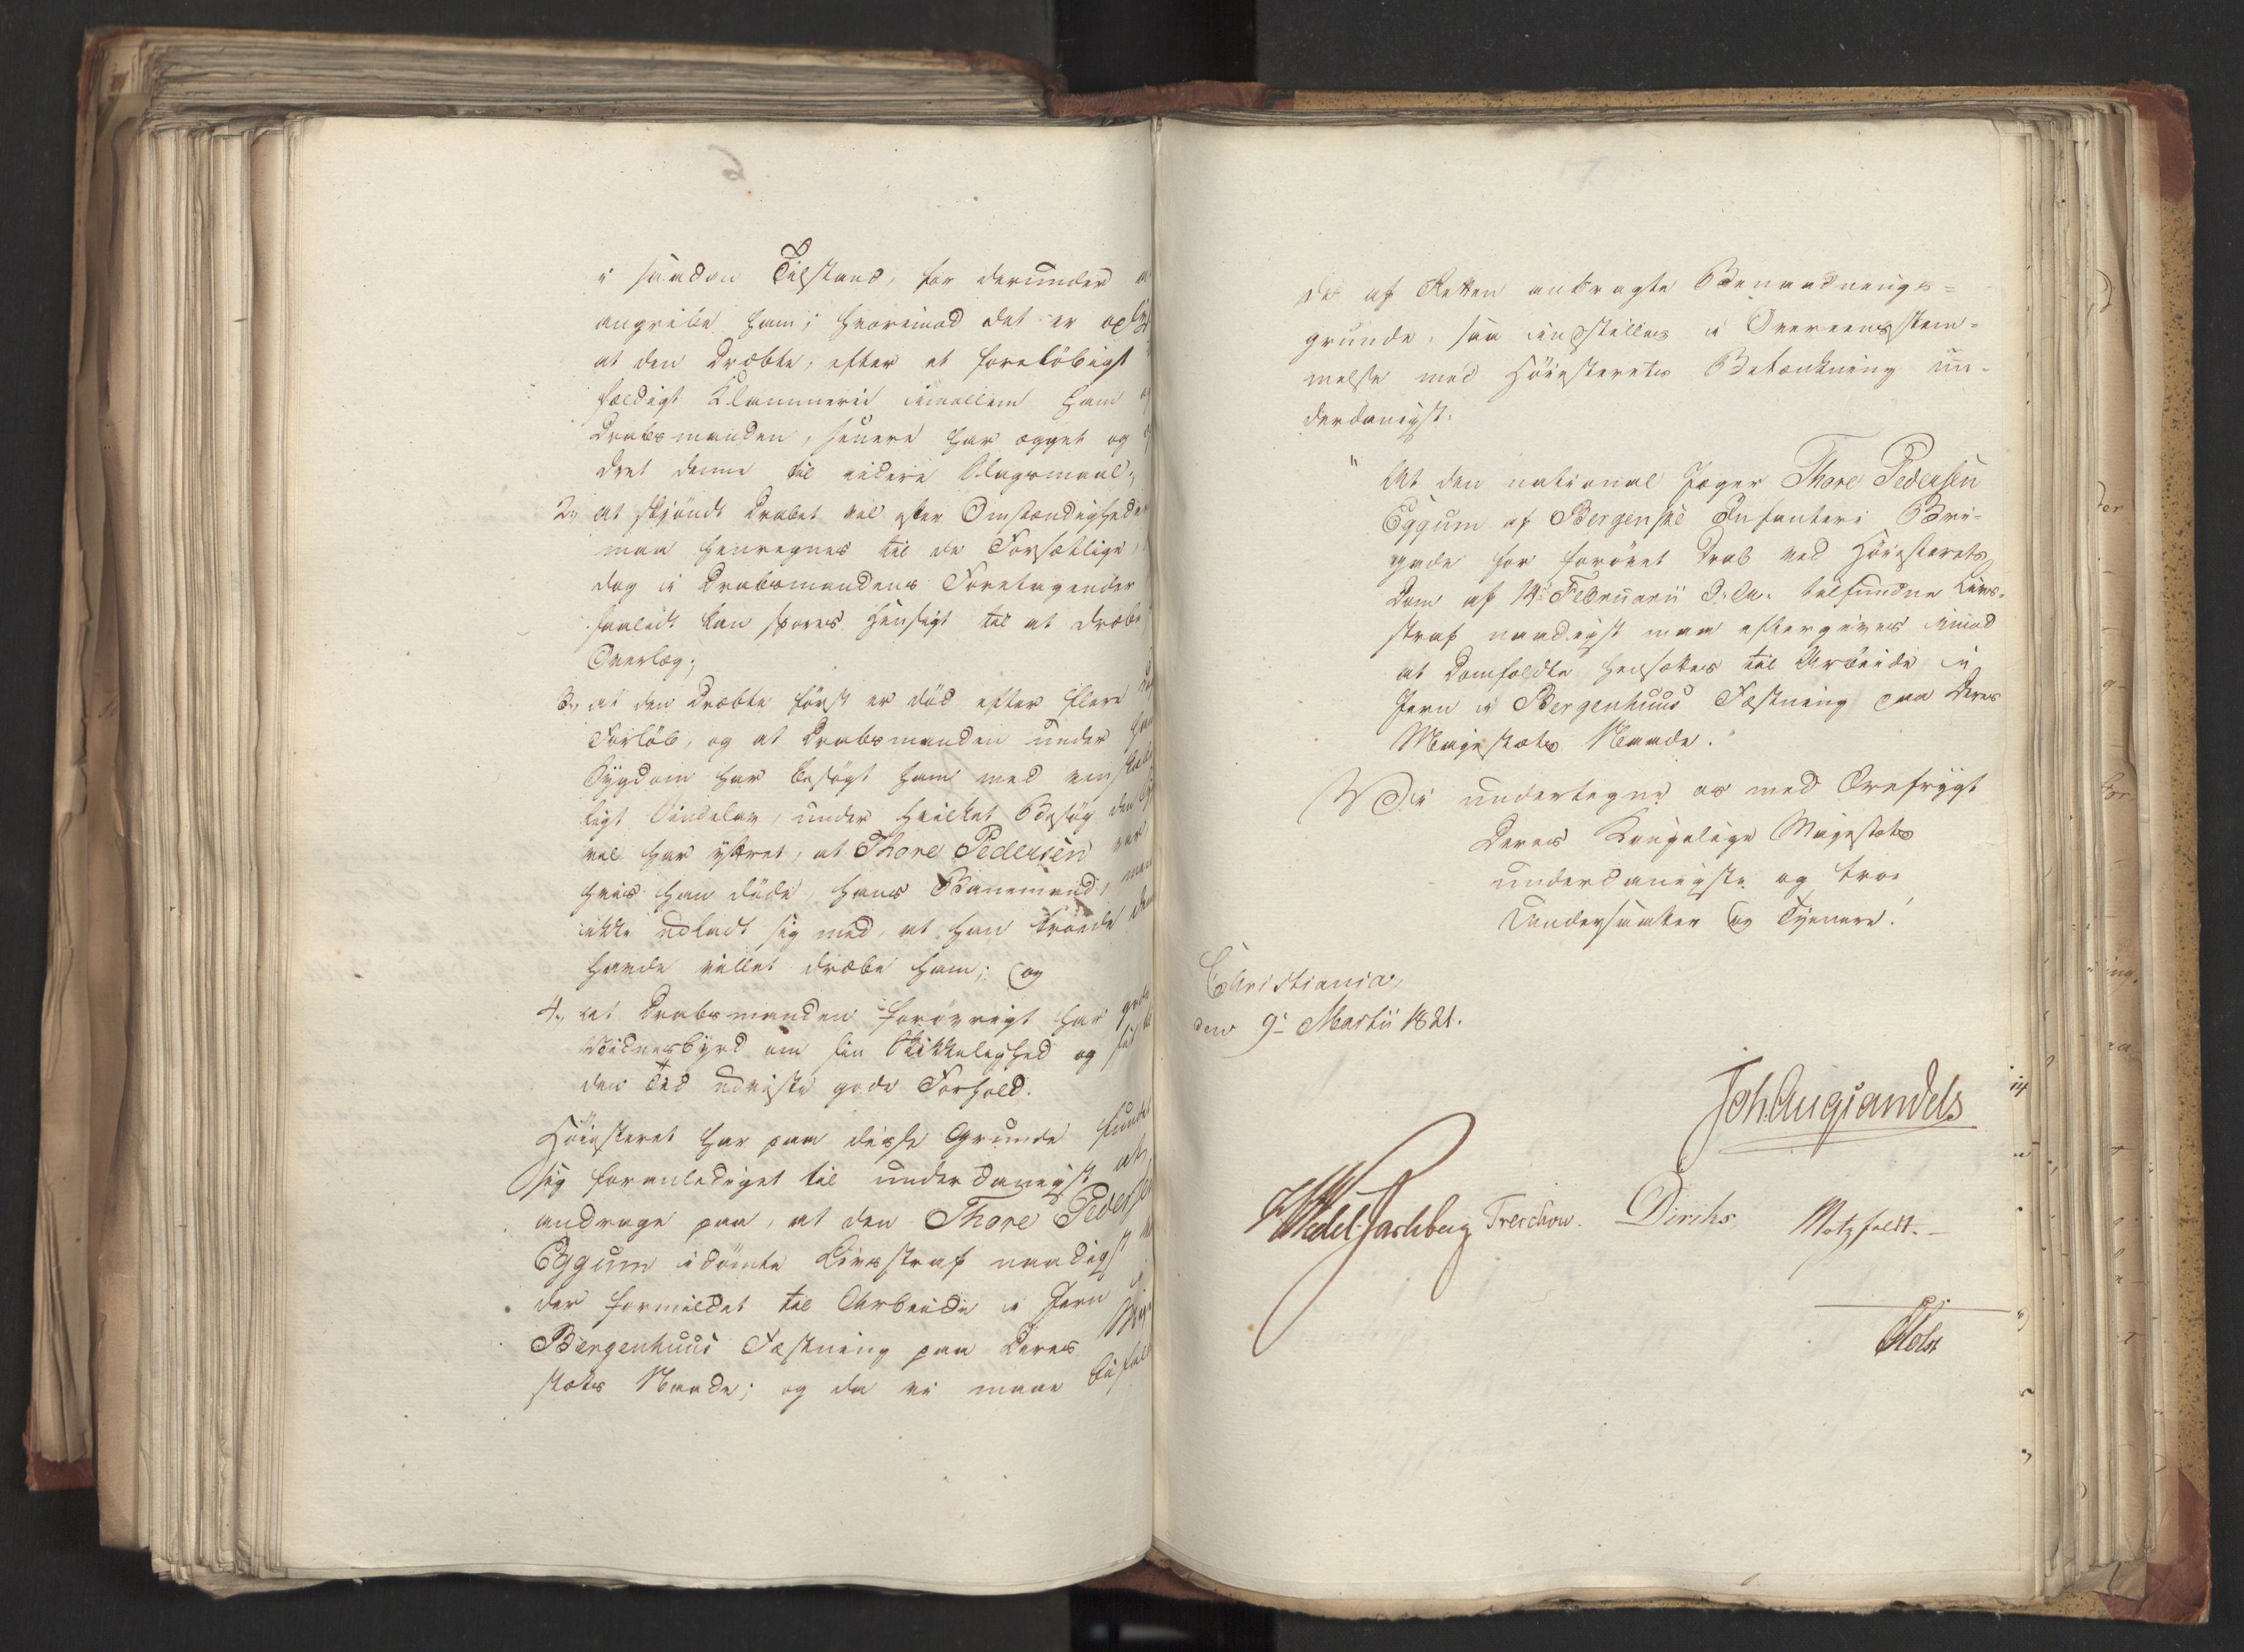 i saadan Tilstand, for derunder
angribe ham; hvorimod det er oplyst
at den Dræbte, efter et foreløbigt
fældigt Klammerie imellem ham og
Drabsmanden, senere har egget og
dret denne til videre Slagsmaal;
2., at skjøndt Drabet vel efter Omstændigheder
maa henregnes til de Forsætlige,
dog i Drabsmandens Foretagender
saaledt kan spores Hensigt til at dræbe
Overlæg;
3., at den Dræbte først er død efter flere
Forløb, og at Drabsmanden under
Sygdom har besøgt ham med venskabe
ligt Sindelav, under hvilket Besøg den
vel har yttret, at Thore Pedersen var
hvis han døde, hans Banemand, men
ikke udladt sig med, at han troede
havde villet dræbe ham; og
4., at Drabsmanden forøvrigt har gode
Vidnesbyrd om sin Skikkelighed og
den Tid udviste gode Forhold.
Høiesteret har paa disse Grunde fundet
sig foranlediget til underdanigst at
andrage paa, at den Thore Pedersen
Eggum idømte Livsstraf naadigst
der formildet til Arbeide i Jern i
Bergenhuus Fæstning paa Deres Maje
stæts Naade; og da vi maae bifalde
de af Retten antragte Benaadnings=
grunde, saa indstilles i Overeensstem=
melse med Høiesterets Betænkning un=
derdanigst:
" At den national Jæger Thore Pedersen
Eggum af Bergenske Infanteri Bri=
gade for forøvet Drab ved Høiesterets
Dom af 14de Februarii d. A. tilfundne Livs=
straf naadigst maa eftergives imod
at Domfældte hensættes til Arbeide i
Jern i Bergenhuus Fæstning paa Deres
Majestæts Naade."
Vi undertegne os med Ærefrygt
Deres Kongelige Majestæts
underdanigste og troe
Undersaatter og Tjenere!
Christiania,
den 9de Martii 1821.
Joh. Aug Sandels
HWedel Jarlsberg Treschow. Diriks Motzfeldt.
Holst